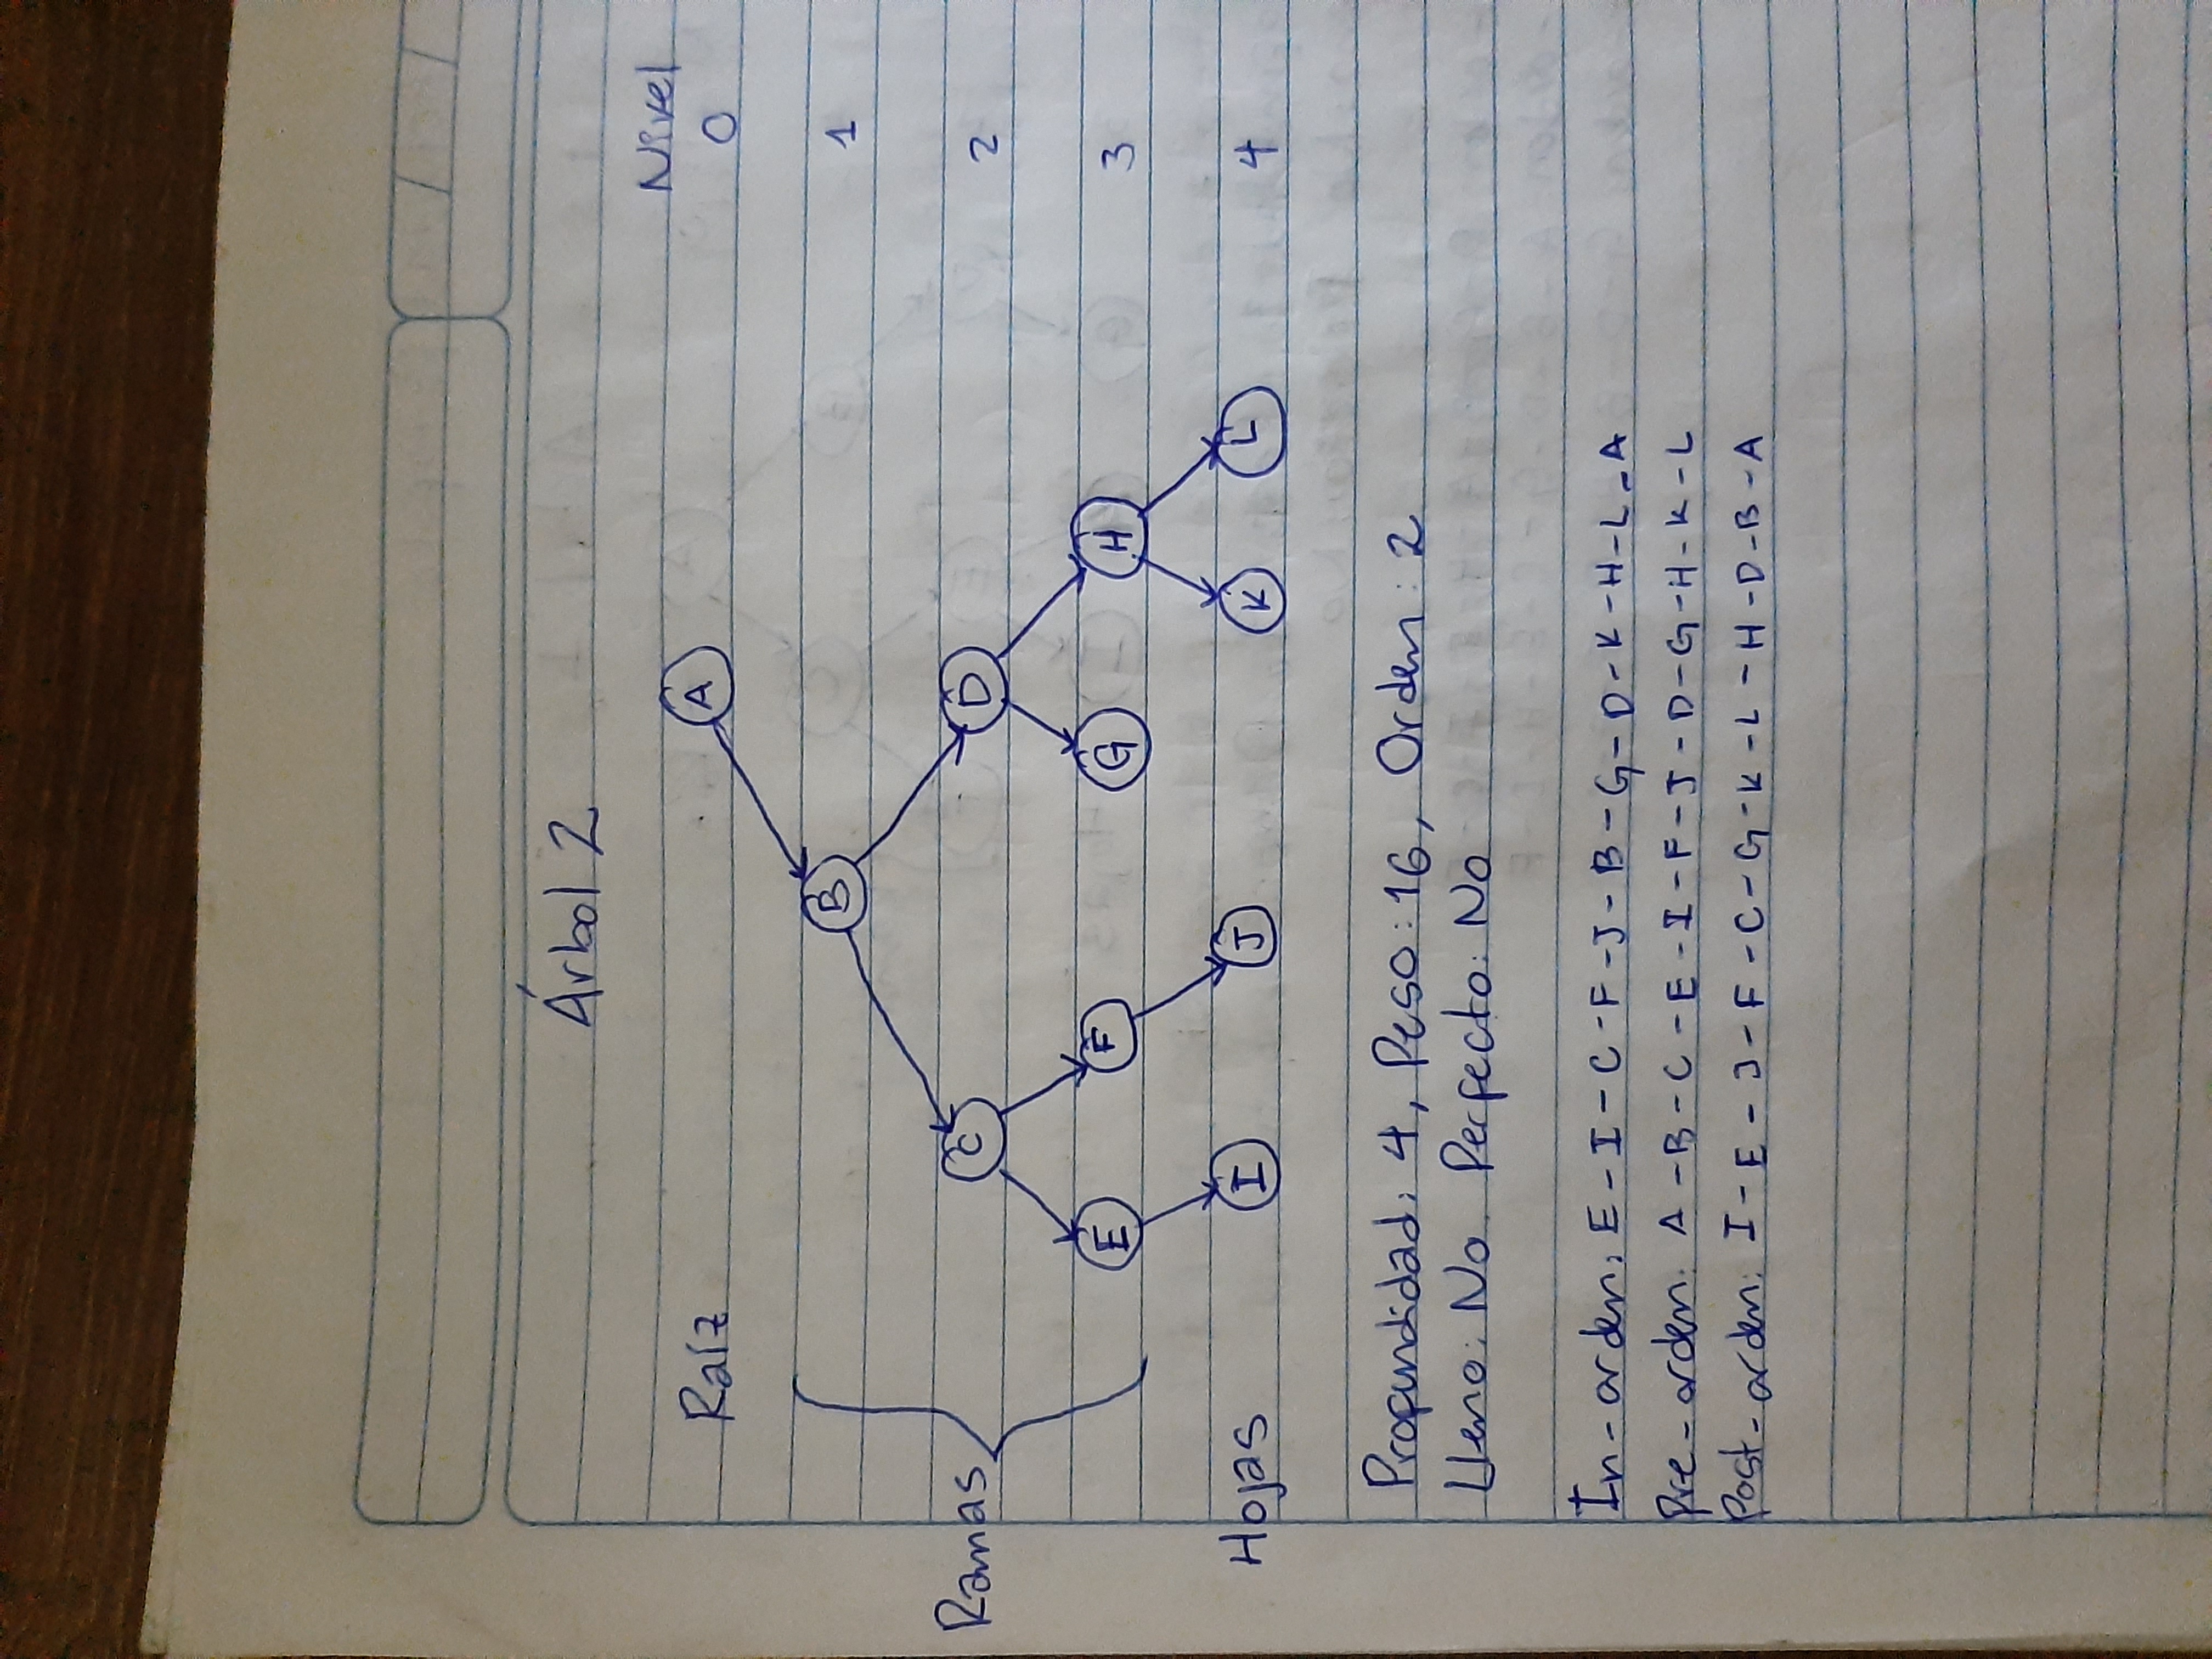 Árbol 2
Nivel
Raíz A 0
B 1
Ramas C D 2
E F G H 3
Hojas I J K L 4
Profundidad: 4, Peso: 16, Orden: 2
Lleno: No. Perfecto: No
In-orden: E-I-C-F-J-B-G-D-K-H-L-A
Pre-orden: A-B-C-E-I-F-J-D-G-H-K-L
Post-orden: I-E-J-F-C-G-K-L-H-D-B-A